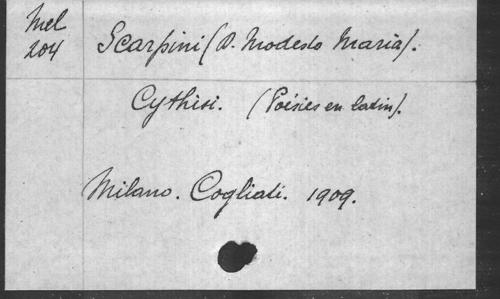 Mel
204
Scarpini (D. Modesto Maria).
Cythisi. (Poésies en latin).
Milano. Cogliati. 1909.